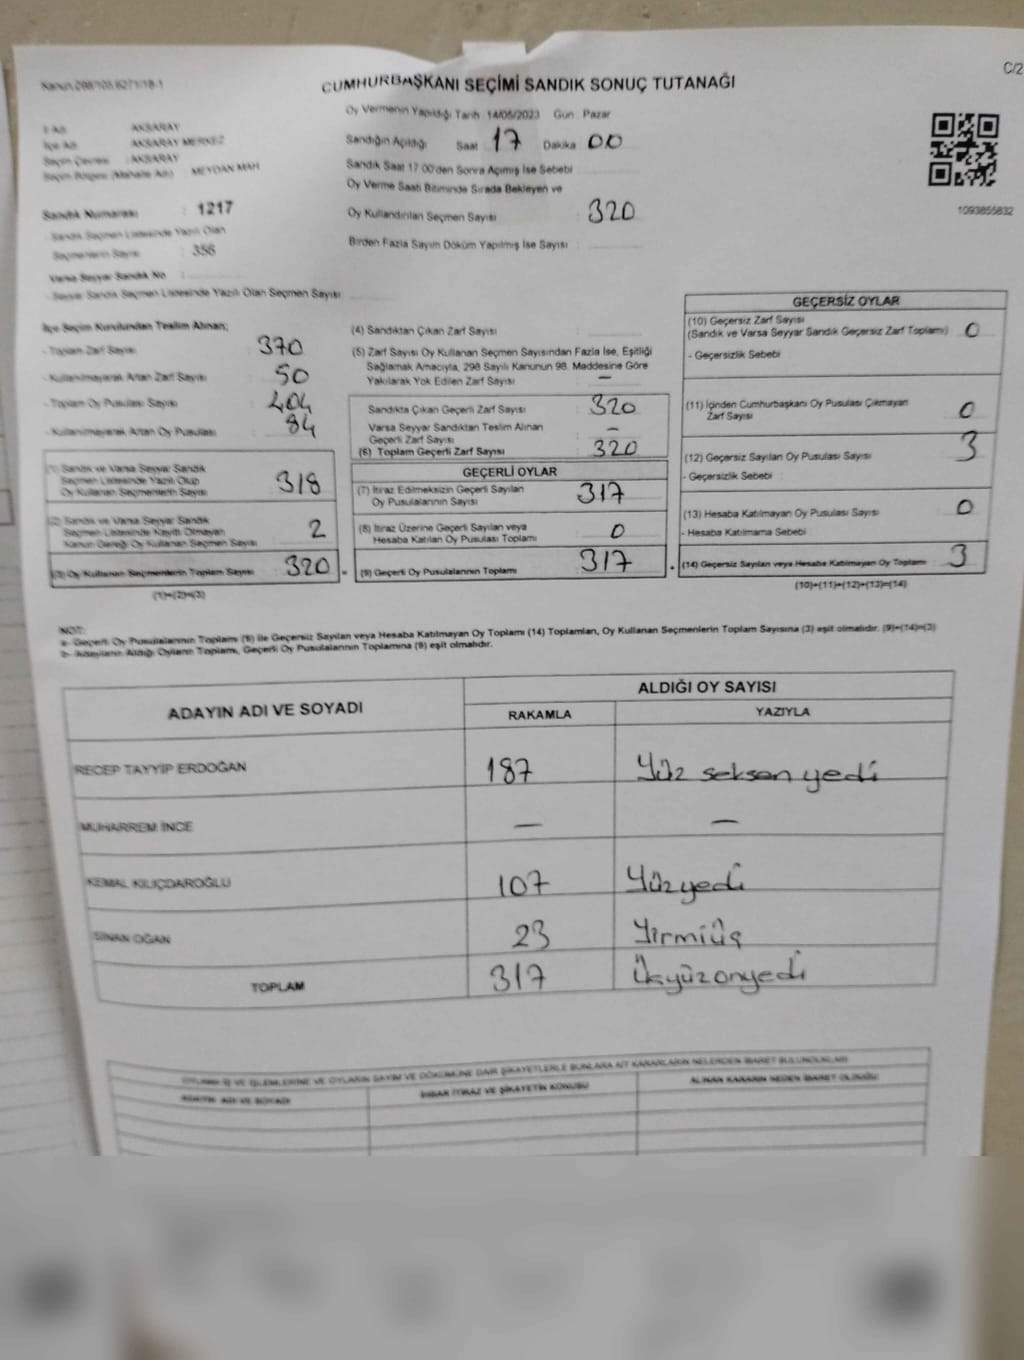 Kanun 298/105,6271/18-1
C/2
CUMHURBAŞKANI SEÇİMİ SANDIK SONUÇ TUTANAĞI
İl Adı AKSARAY
İlçe Adı AKSARAY MERKEZ
Seçim Çevresi : AKSARAY
Seçim Bölgesi (Mahalle Adı) : MEYDAN MAH
Sandık Numarası : 1217
- Sandık Seçmen Listesinde Yazılı Olan
Seçmenlerin Sayısı : 356
Varsa Seyyar Sandık No :
- Seyyar Sandık Seçmen Listesinde Yazılı Olan Seçmen Sayısı
Oy Vermenin Yapıldığı Tarih 14/05/2023 Gün : Pazar
Sandığın Açıldığı Saat 17 Dakika 00
Sandık Saat 17.00'den Sonra Açımış İse Sebebi :
Oy Verme Saati Bitiminde Sırada Bekleyen ve
Oy Kullandırılan Seçmen Sayısı : 320
Birden Fazla Sayım Döküm Yapılmış İse Sayısı :
1093855832
İlçe Seçim Kurulundan Teslim Alınan;
- Toplam Zarf Sayısı 370
- Kullanılmayarak Artan Zarf Sayısı 50
- Toplam Oy Pusulası Sayısı 404
- Kullanılmayarak Artan Oy Pusulası 84
(1) Sandık ve Varsa Seyyar Sandık
Seçmen Listesinde Yazılı Olup
Oy Kullanan Seçmenlerin Sayısı 318
(2) Sandık ve Varsa Seyyar Sandık
Seçmen Listesinde Kayıtlı Olmayan
Kanun Gereği Oy Kullanan Seçmen Sayısı 2
(3) Oy Kullanan Seçmenlerin Toplam Sayısı 320 =
(1)+(2)=(3)
(4) Sandıktan Çıkan Zarf Sayısı :
(5) Zarf Sayısı Oy Kullanan Seçmen Sayısından Fazla İse, Eşitliği
Sağlamak Amacıyla, 298 Sayılı Kanunun 98. Maddesine Göre
Yakılarak Yok Edilen Zarf Sayısı : —
Sandıkta Çıkan Geçerli Zarf Sayısı : 320
Varsa Seyyar Sandıktan Teslim Alınan
Geçerli Zarf Sayısı : —
(6) Toplam Geçerli Zarf Sayısı : 320
GEÇERLİ OYLAR
(7) İtiraz Edilmeksizin Geçerli Sayılan
Oy Pusulalarının Sayısı : 317
(8) İtiraz Üzerine Geçerli Sayılan veya
Hesaba Katılan Oy Pusulası Toplamı : 0
(9) Geçerli Oy Pusulalarının Toplamı : 317 +
GEÇERSİZ OYLAR
(10) Geçersiz Zarf Sayısı
(Sandık ve Varsa Seyyar Sandık Geçersiz Zarf Toplamı) : 0
- Geçersizlik Sebebi
(11) İçinden Cumhurbaşkanı Oy Pusulası Çıkmayan
Zarf Sayısı 0
(12) Geçersiz Sayılan Oy Pusulası Sayısı 3
- Geçersizlik Sebebi :
(13) Hesaba Katılmayan Oy Pusulası Sayısı 0
- Hesaba Katılmama Sebebi
(14) Geçersiz Sayılan veya Hesaba Katılmayan Oy Toplamı : 3
(10)+(11)+(12)+(13)=(14)
NOT:
a- Geçerli Oy Pusulalarının Toplamı (9) ile Geçersiz Sayılan veya Hesaba Katılmayan Oy Toplamı (14) Toplamları, Oy Kullanan Seçmenlerin Toplam Sayısına (3) eşit olmalıdır. (9)+(14)=(3)
b- Adayların Aldığı Oyların Toplamı, Geçerli Oy Pusulalarının Toplamına (9) eşit olmalıdır.
ADAYIN ADI VE SOYADI ALDIĞI OY SAYISI
RAKAMLA YAZIYLA
RECEP TAYYİP ERDOĞAN 187 Yüz seksen yedi
MUHARREM İNCE — —
KEMAL KILIÇDAROĞLU 107 Yüzyedi
SİNAN OĞAN 23 Yirmiüç
TOPLAM 317 Üçyüzonyedi
OYLAMA İŞ VE İŞLEMLERİNE VE OYLARIN SAYIM VE DÖKÜMÜNE DAİR ŞİKAYETLERLE BUNLARA AİT KARARLARIN NELERDEN İBARET BULUNDUKLARI
ADI VE SOYADI İTİRAZ VE ŞİKAYETİN KONUSU ALINAN KARARIN NEDEN İBARET OLDUĞU